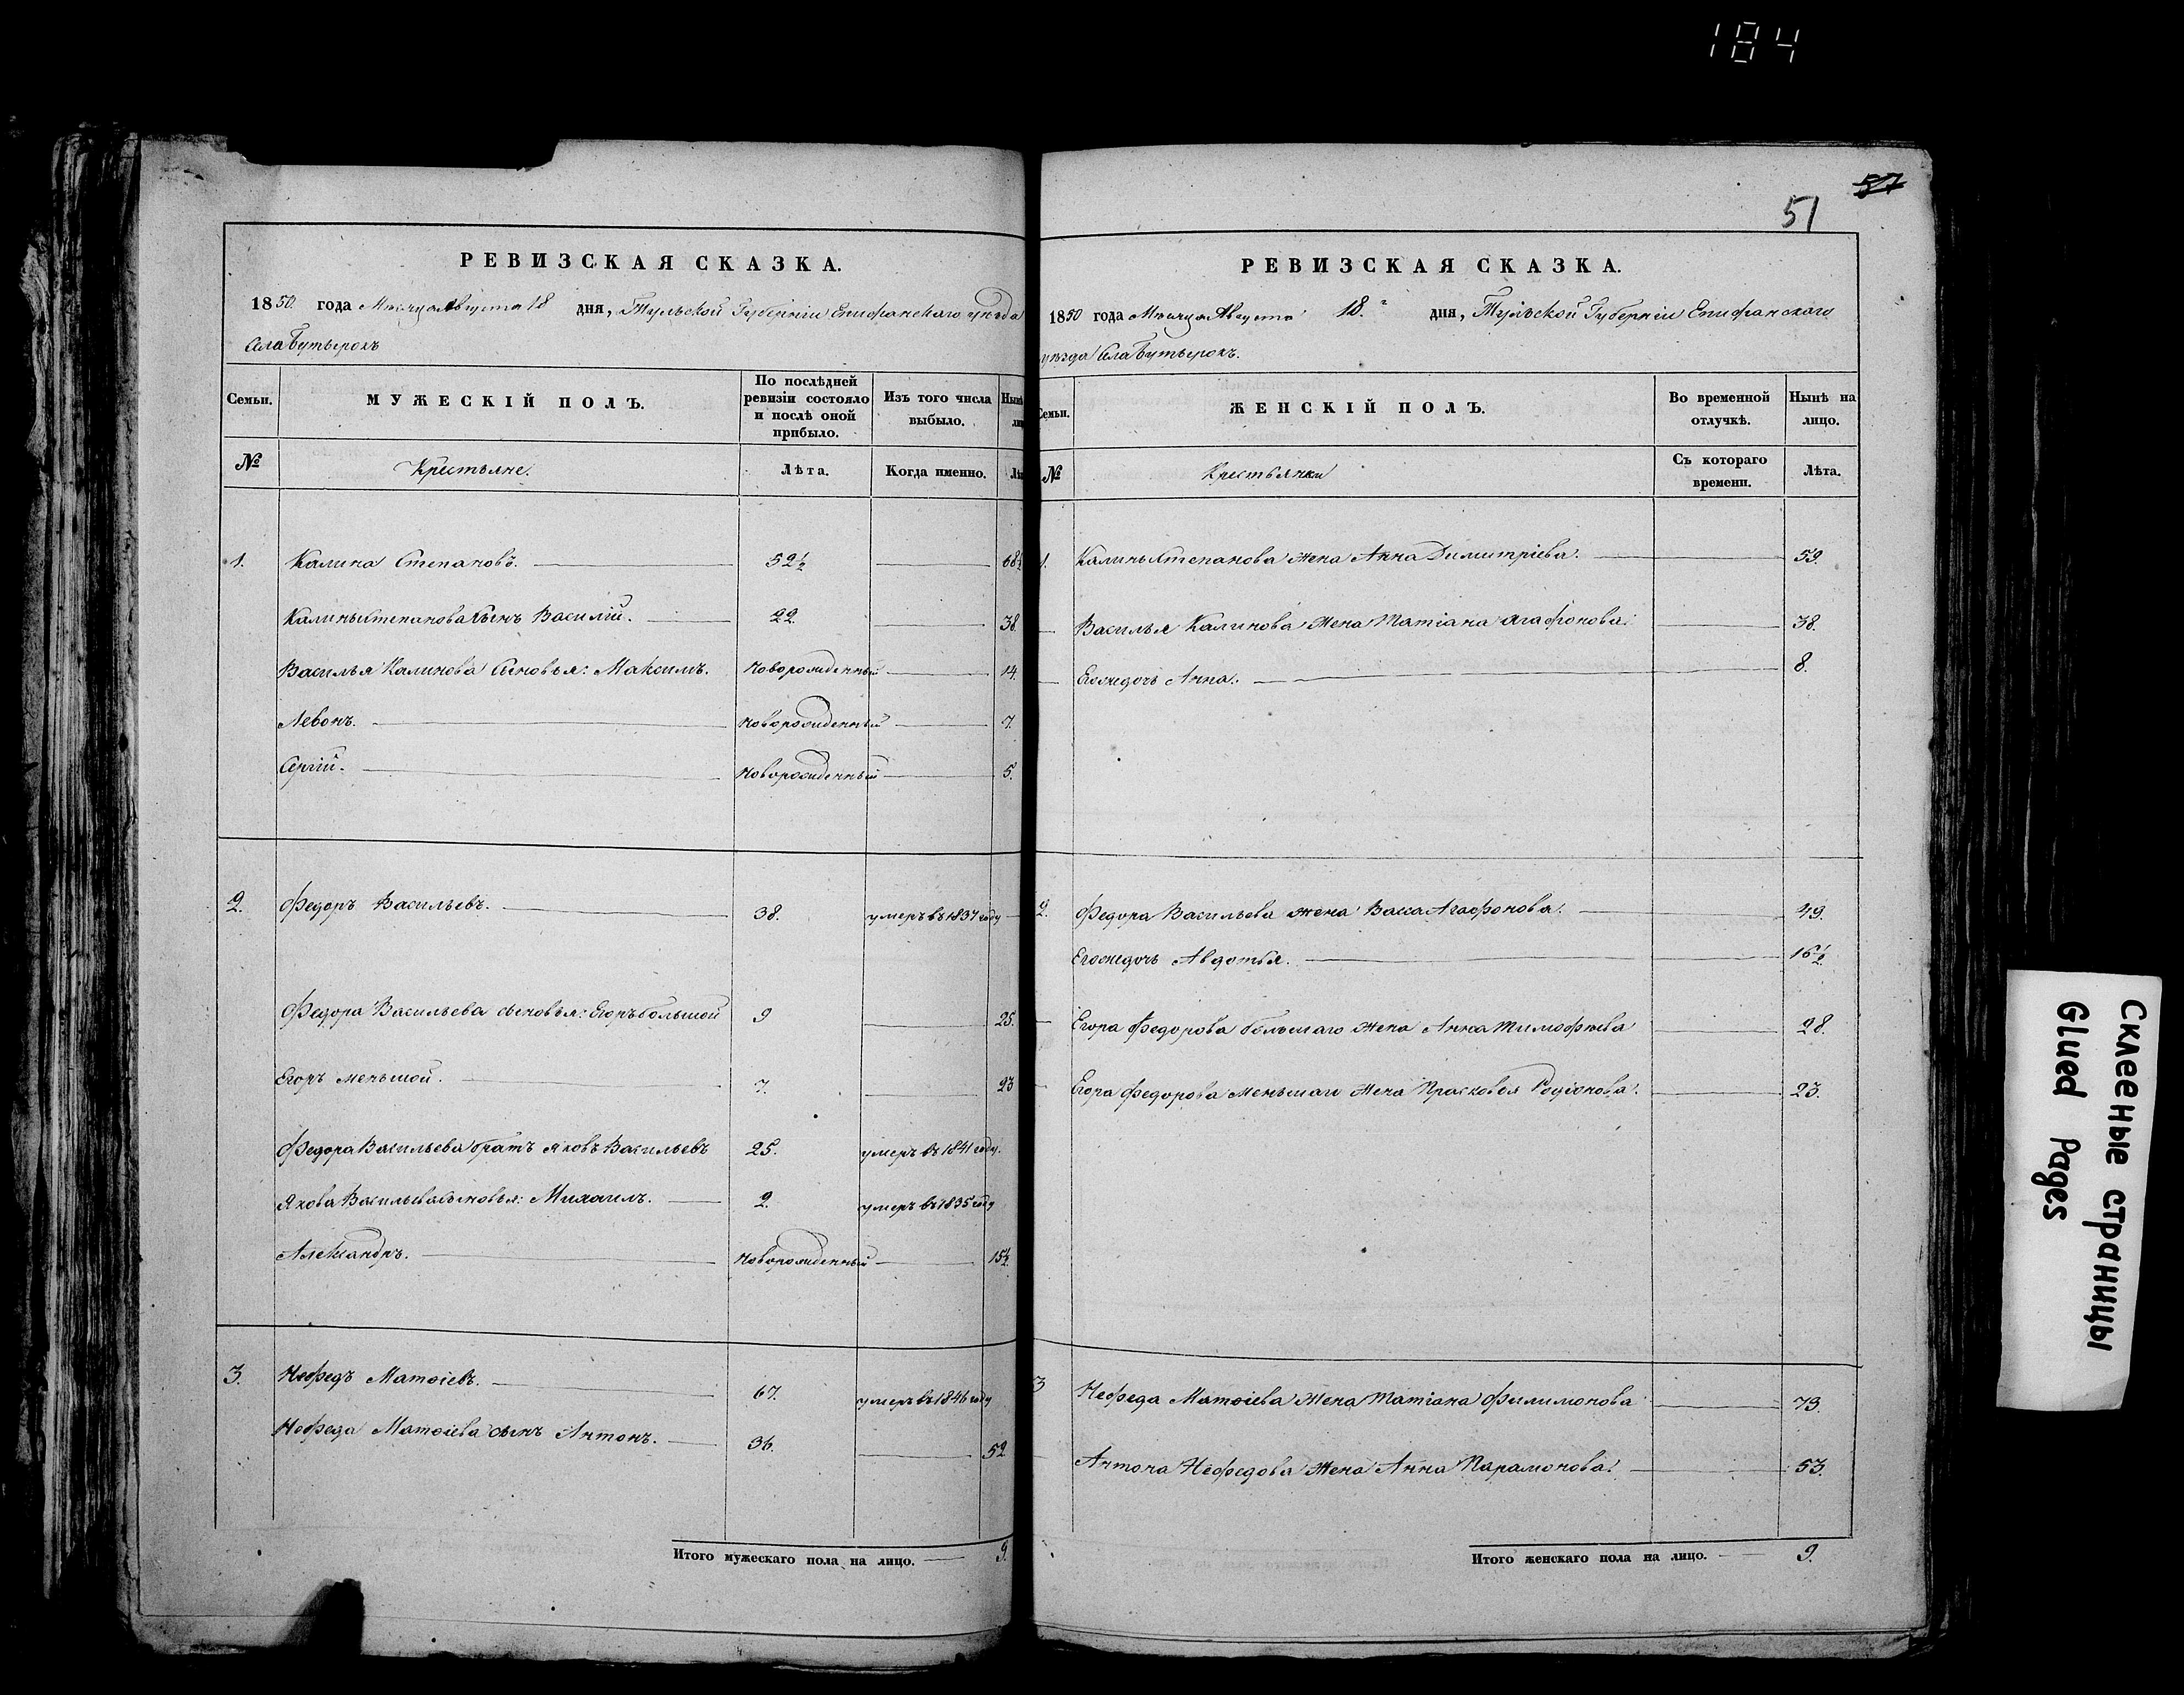 184
57
51
РЕВИЗСКАЯ СКАЗКА.
1850 года Месяца Августа 18 дня, Тульской Губерніи Епифанскаго уѣзда
Села Бутырокъ
Семьи. МУЖЕСКІЙ ПОЛЪ. По послѣдней ревизіи состояло и послѣ оной прибыло. Изъ того числа выбыло. Нынѣ
№ Крестьяне. Лѣта. Когда именно.
1. Калина Степановъ. 52½ 68½
Калины Степанова сынъ Василій. 22 38.
Василья Калинова сыновья: Максимъ. новорожденный 14.
Левонъ. новорожденный 7.
Сергій. новорожденный 5.
2. Федоръ Васильевъ. 38. умеръ въ 1837 году
Федора Васильева сыновья: Егоръ большой 9 25.
Егоръ меньшой. 7. 23
Федора Васильева братъ Яковъ Васильевъ 25. умеръ въ 1841 году.
Якова Васильева сыновья: Михаилъ. 2. умеръ въ 1835 году
Александръ. новорожденный 15½.
3. Нефедъ Матвіевъ. 67. умеръ въ 1846 году
Нефеда Матвіева сынъ Антонъ. 36. 52
Итого мужескаго пола на лицо. 9.
РЕВИЗСКАЯ СКАЗКА.
1850 года Месяца Августа 18. дня, Тульской Губерніи Епифанскаго
уѣзда Села Бутырокъ.
Семьи. ЖЕНСКІЙ ПОЛЪ. Во временной отлучкѣ. Нынѣ на лицо.
№ Крестьянки Съ котораго времени. Лѣта.
1. Калины Степанова жена Анна Димитріева. 59.
Василья Калинова жена Татіана Агафонова. 38.
Его ж дочь Анна. 8.
2. Федора Васильева жена Васса Агафонова. 49.
Его ж дочь Авдотья. 16½
Егора Федорова большаго жена Анна Тимофѣева 28.
Егора Федорова меньшаго жена Прасковья Родіонова. 23.
3 Нефеда Матвіева жена Татіана Филимонова 73.
Антона Нефедова жена Анна Парамонова. 53.
Итого женскаго пола на лицо. 9.
Склееные страницы
Glued Pages